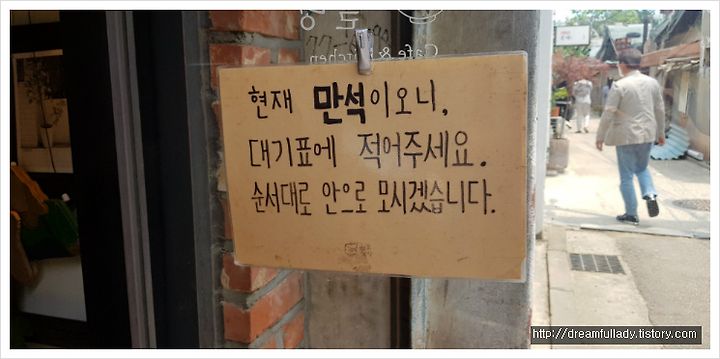 Cafe & Kitchen
현재 만석이오니,
대기표에 적어주세요.
순서대로 안으로 모시겠습니다.
http://dreamfullady.tistory.com